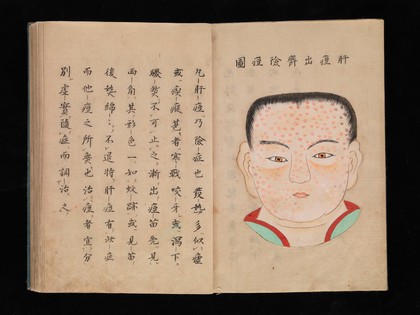 肝痘出齊險痘圖
凡肝痘乃險症也發熱多似瘧
或者寒戰咬牙或瀉下
不可止之漸出痘苗先見
両角其形色一如蚊跡或見苗
後熱綿〻不退特肝痘有此症
而他痘之所出治痘者宜分
別虛實隨症而調治之